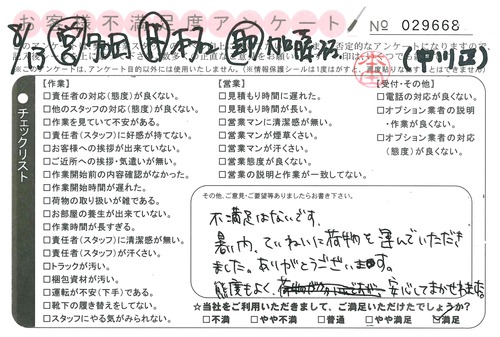 お客様不満足度アンケート
№ 029668
(中川区)
【作業】
□責任者の対応(態度)が良くない。
□他のスタッフの対応(態度)が良くない。
□作業を見ていて不安がある。
□責任者(スタッフ)に好感が持てない。
□お客様への挨拶が出来ていない。
□ご近所への挨拶・気遣いが無い。
□作業開始前の内容確認がなかった。
□作業開始時間が遅れた。
□荷物の取り扱いが雑である。
□お部屋の養生が出来ていない。
□作業時間が長すぎる。
□責任者(スタッフ)に清潔感が無い。
□責任者(スタッフ)が汗くさい。
□トラックが汚い。
□梱包資材が汚い。
□運転が不安(下手)である。
□靴下の履き替えをしてない。
□スタッフにやる気がみられない。
【営業】
□見積もり時間に遅れた。
□見積もり時間が長い。
□営業マンに清潔感が無い。
□営業マンが煙草くさい。
□営業マンが汗くさい。
□営業態度が良くない。
□営業の説明と作業が一致してない。
【受付・その他】
□電話の対応が良くない。
□オプション業者の説明
・作業が良くない。
□オプション業者の対応
(態度)が良くない。
●チェックリスト
その他、ご意見・ご要望等ありましたらお書き下さい。
不満足はないです。
暑い内、ていねいに荷物を運んでいただき
ました。ありがとうございます。
態度もよく、安心してまかせれました。
☆当社をご利用いただきまして、ご満足いただけたでしょうか?
□不満 □やや不満 □普通 □やや満足 □満足